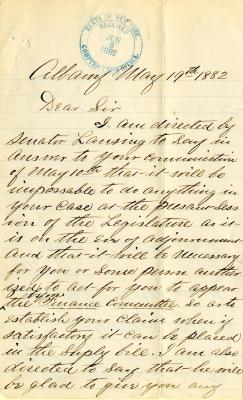 STATE OF NEW YORK
RECEIVED
JUN
1882
COMPTROLLER'S OFFICE
Albany May 19th 1882
Dear Sir
I am directed by
Senator Lansing to say in
answer to your communication
of May 10th that it will be
impossable to do anything in
your case at the presant Sess
ion of the Legislature as it
is on the Eve of adjournment
and that it will be necessary
for you or some person author
ised to act for you to appear
before
the Finance Committee. So as to
establish your claim when if
satisfactory it can be placed
in the Suply bill. I am also
directed to say that he will
be glad to give you any